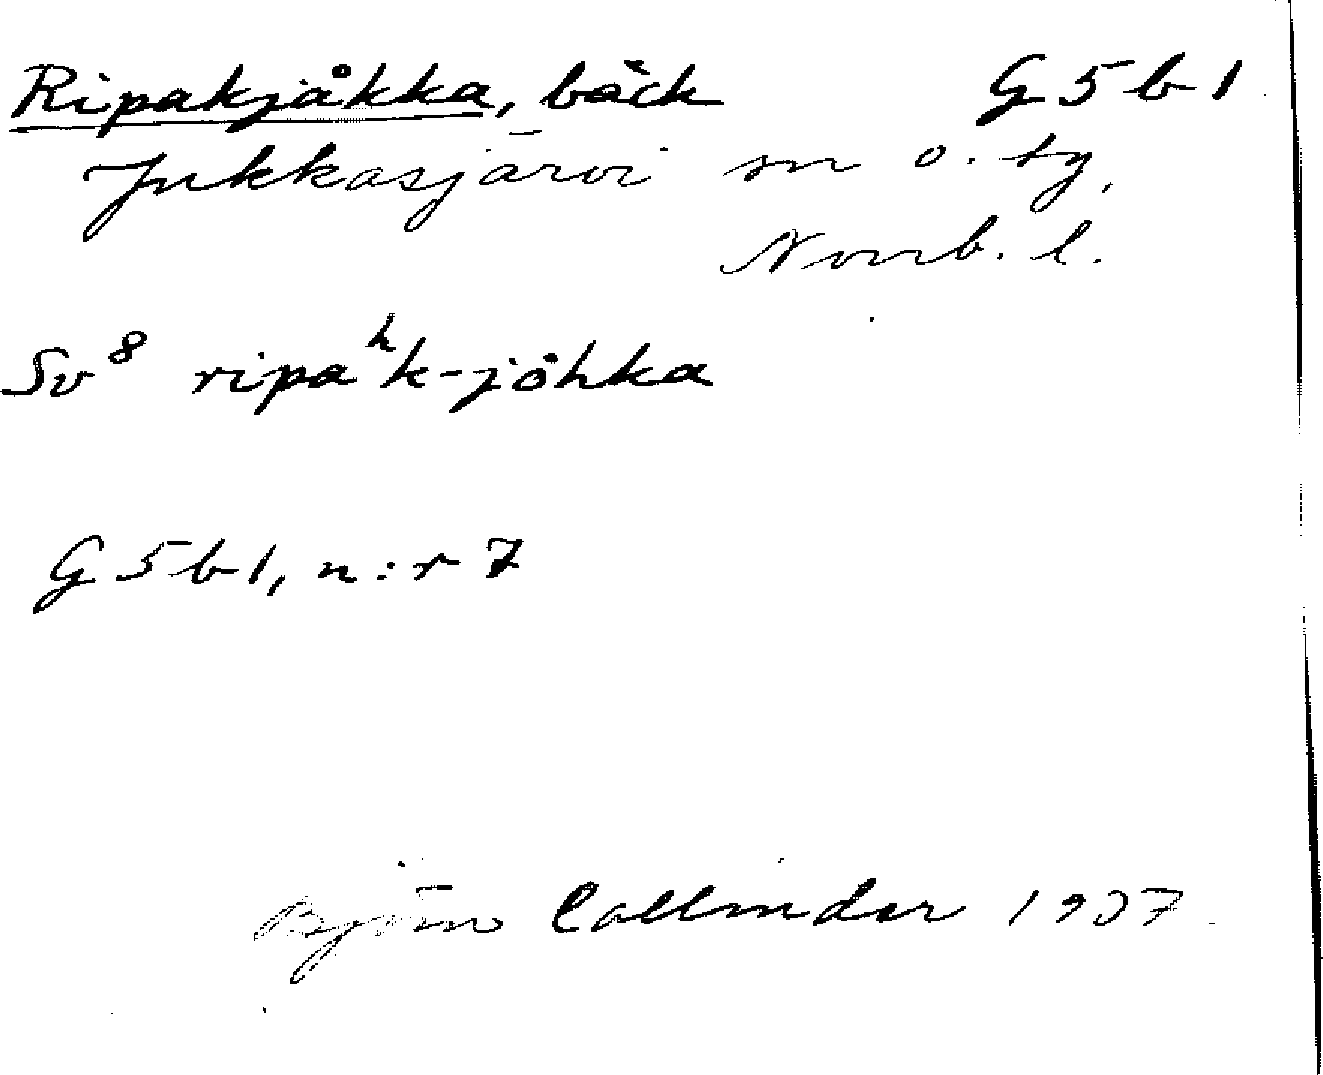 Ripakjåkka, bäck G5b1
Jukkasjärvi sn o. tg,
Norrb. l.
Sv⁸ ripaʰk-jåhka
G5b1, n:r 7
Björn Collinder 1937